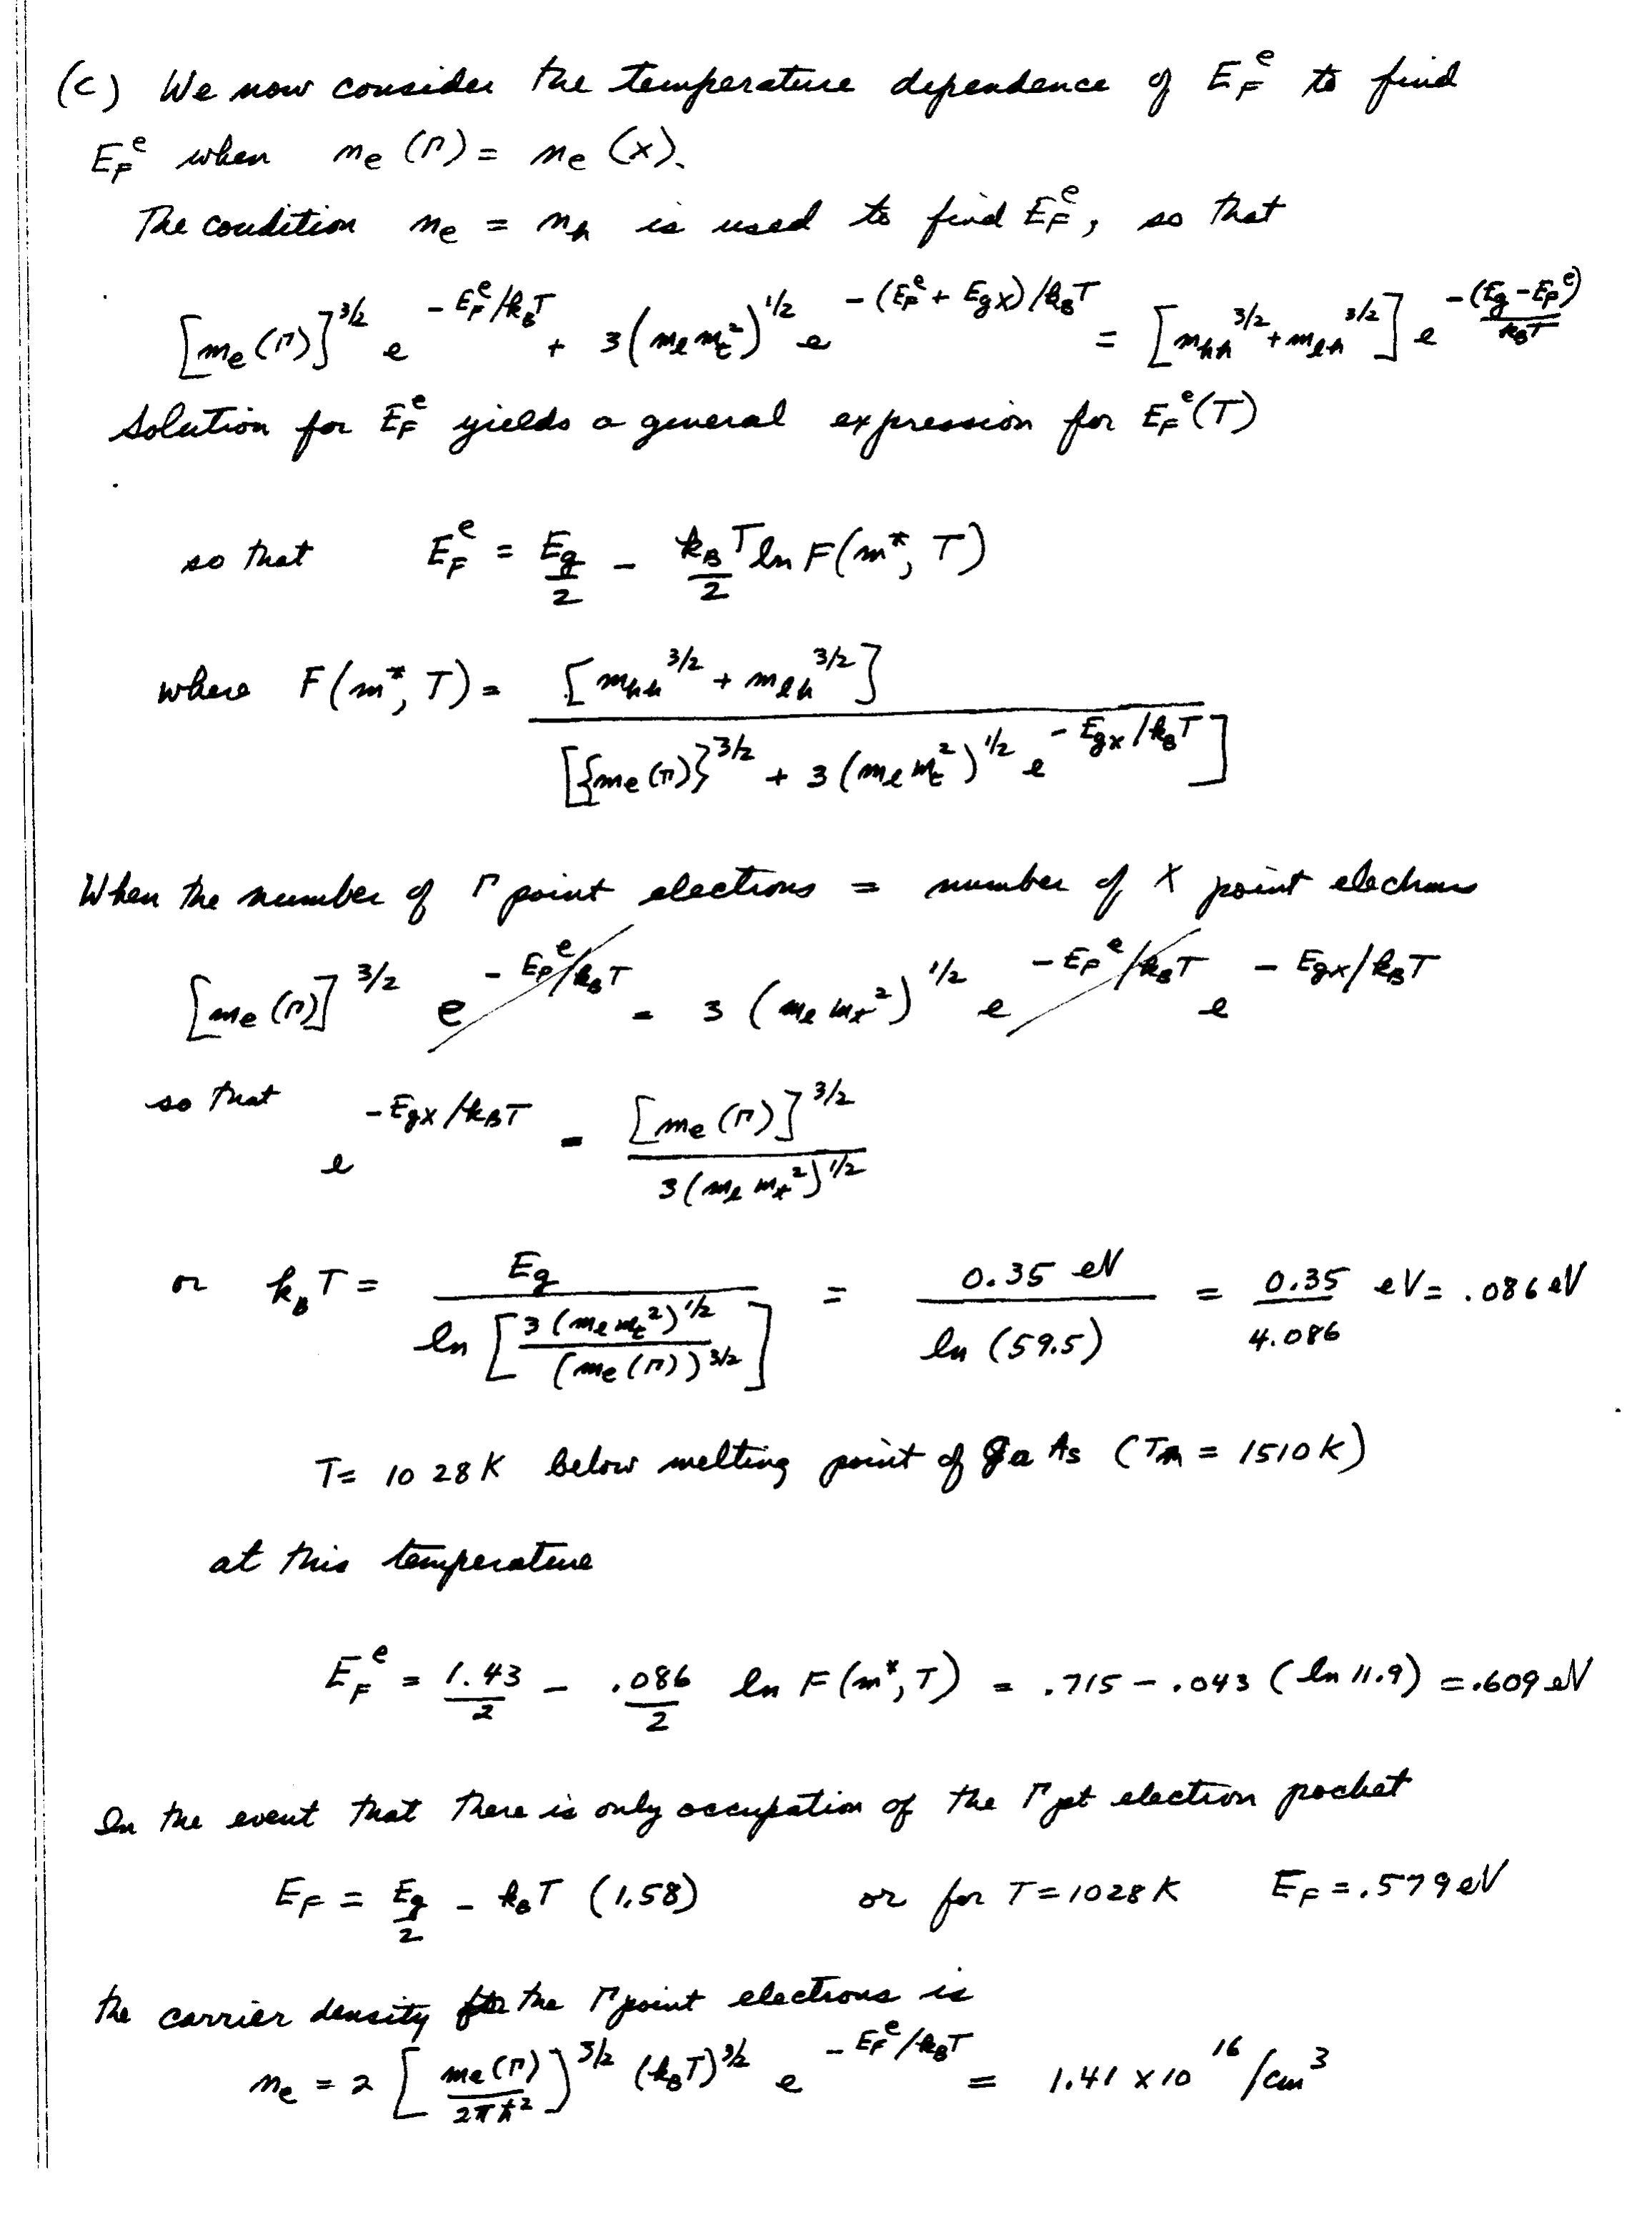 (c) We now consider the temperature dependence of E_F^e to find
E_F^e when n_e (Γ) = n_e (X).
The condition n_e = n_h is used to find E_F^e, so that
[m_e(Γ)]^{3/2} e^{-E_F^e/k_BT} + 3(m_l m_t^2)^{1/2} e^{-(E_F^e + E_{gX})/k_BT} = [m_{hh}^{3/2} + m_{lh}^{3/2}] e^{-(E_g - E_F^e)/k_BT}
Solution for E_F^e yields a general expression for E_F^e(T)
so that E_F^e = E_g/2 - k_BT/2 ln F(m*, T)
where F(m*, T) = [m_{hh}^{3/2} + m_{lh}^{3/2}] / [{m_e(Γ)}^{3/2} + 3(m_l m_t^2)^{1/2} e^{-E_{gX}/k_BT}]
When the number of Γ point electrons = number of X point electrons
[m_e(Γ)]^{3/2} e^{-E_F^e/k_BT} = 3 (m_l m_t^2)^{1/2} e^{-E_F^e/k_BT} e^{-E_{gX}/k_BT}
so that e^{-E_{gX}/k_BT} = [m_e(Γ)]^{3/2} / 3(m_l m_t^2)^{1/2}
or k_BT = E_g / ln [3(m_l m_t^2)^{1/2} / (m_e(Γ))^{3/2}] = 0.35 eV / ln (59.5) = 0.35/4.086 eV = .086 eV
T = 1028 K below melting point of GaAs (T_m = 1510 K)
at this temperature
E_F^e = 1.43/2 - .086/2 ln F(m*, T) = .715 - .043 (ln 11.9) = .609 eV
In the event that there is only occupation of the Γ pt electron pocket
E_F = E_g/2 - k_BT (1.58) or for T = 1028 K E_F = .579 eV
the carrier density for the Γ point electrons is
n_e = 2 [m_e(Γ)/2πħ^2]^{3/2} (k_BT)^{3/2} e^{-E_F^e/k_BT} = 1.41 x 10^{16}/cm^3